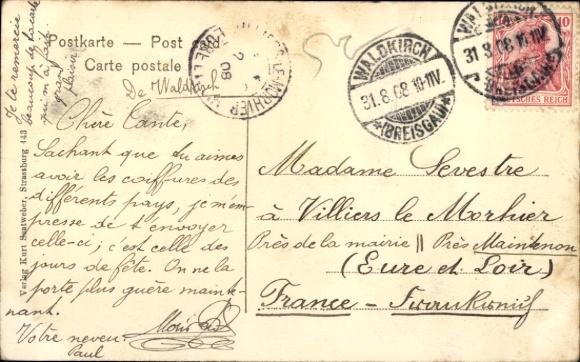 Postkarte — Post Card
Carte postale
De Waldkirch
Je te remercie
beaucoup de ta carte
qui m'a fait
grand
plaisir
Chère Tante,
Sachant que tu aimes
avoir les coiffures des
différents pays, je m'em-
presse de t'envoyer
celle-ci; c'est celle des
jours de fête. On ne la
porte plus guère mainte-
nant.
Votre neveu
Paul
Verlag Kurt Sastweber, Strassburg 143
WALDKIRCH
31.8.08 10-11V.
*(BREISGAU)*
WALDKIRCH
31.8.08 10-11V.
(BREISGAU)
10
DEUTSCHES REICH
VILLIERS-LE-MORHIER
2
08
Madame Sevestre
à Villiers le Morhier
Près de la mairie || Près Maintenon
(Eure et Loir)
France — Frankreich